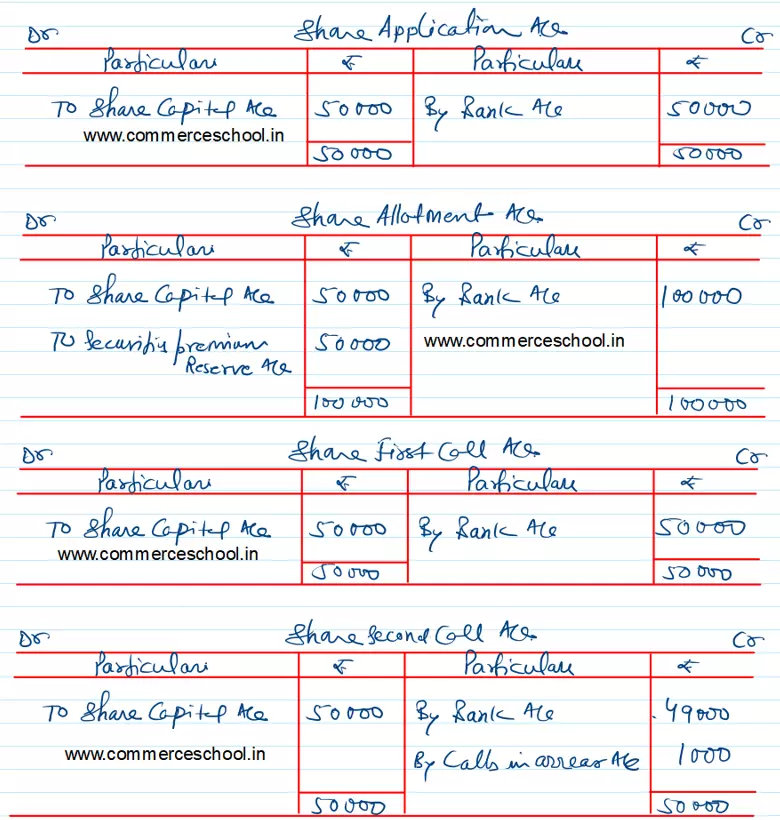 Dr Share Application A/c Cr
Particulars ₹ Particulars ₹
To Share Capital A/c 50000 By Bank A/c 50000
www.commerceschool.in
50000 50000
Dr Share Allotment A/c Cr
Particulars ₹ Particulars ₹
To Share Capital A/c 50000 By Bank A/c 100000
To Securities premium 50000 www.commerceschool.in
Reserve A/c
100000 100000
Dr Share First Call A/c Cr
Particulars ₹ Particulars ₹
To Share Capital A/c 50000 By Bank A/c 50000
www.commerceschool.in
50000 50000
Dr Share Second Call A/c Cr
Particulars ₹ Particulars ₹
To Share Capital A/c 50000 By Bank A/c 49000
www.commerceschool.in By Calls in arrear A/c 1000
50000 50000